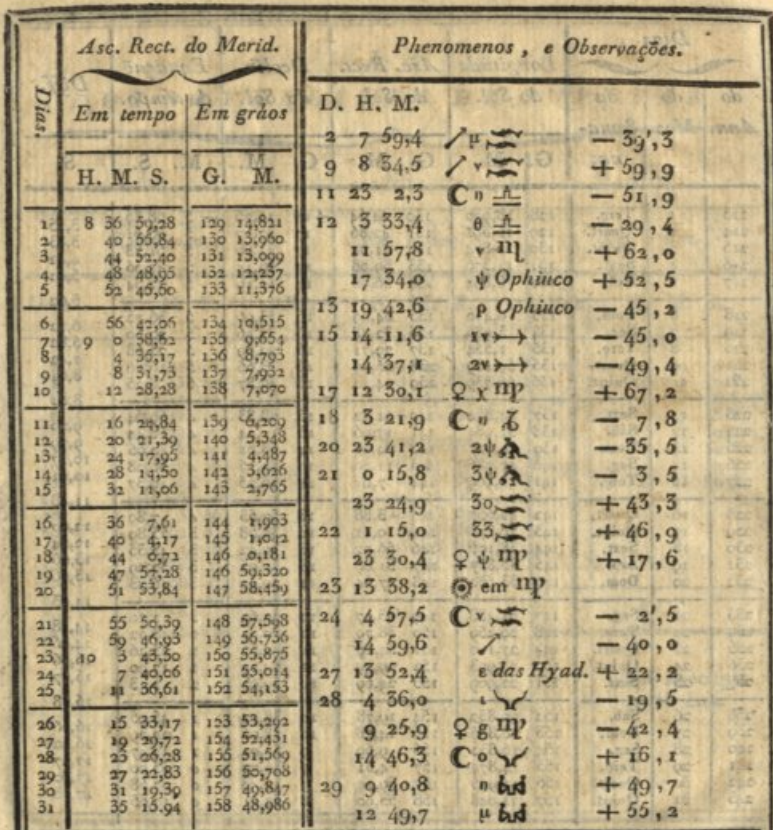 Dias.
Asc. Rect. do Merid.
Em tempo Em gráos
H. M. S. G. M.
1 8 36 59,28 129 14,821
2 40 55,84 130 13,960
3 44 52,40 131 13,099
4 48 48,95 132 12,237
5 52 45,50 133 11,376
6 56 42,06 134 10,515
7 9 0 38,62 135 9,654
8 4 35,17 136 8,793
9 8 31,73 137 7,932
10 12 28,28 138 7,070
11 16 24,84 139 6,209
12 20 21,39 140 5,348
13 24 17,95 141 4,487
14 28 14,50 142 3,626
15 32 11,06 143 2,765
16 36 7,61 144 1,903
17 40 4,17 145 1,042
18 44 0,72 146 0,181
19 47 57,28 146 59,320
20 51 53,84 147 58,459
21 55 50,39 148 57,598
22 59 46,95 149 56,736
23 10 3 43,50 150 55,875
24 7 40,06 151 55,014
25 11 36,61 152 54,153
26 15 33,17 153 53,292
27 19 29,72 154 52,431
28 23 26,28 155 51,569
29 27 22,83 156 50,708
30 31 19,39 157 49,847
31 35 15.94 158 48,986
Phenomenos, e Observações.
D. H. M.
2 7 59,4 μ ♒ — 39',3
9 8 34,5 ν ♒ + 59,9
11 23 2,3 ☾ η ♎ — 51,9
12 3 33,4 θ ♎ — 29,4
11 57,8 ν ♏ + 62,0
17 34,0 ψ Ophiuco + 52,5
13 19 42,6 ρ Ophiuco — 45,2
15 14 11,6 1ν ♐ — 45,0
14 37,1 2ν ♐ — 49,4
17 12 30,1 ♀ χ ♍ + 67,2
18 3 21,9 ☾ η ♑ — 7,8
20 23 41,2 2ψ ♒ — 35,5
21 0 15,8 3ψ ♒ — 3,5
23 24,9 30 ♓ + 43,3
22 1 15,0 33 ♓ + 46,9
23 30,4 ♀ ψ ♍ + 17,6
23 13 38,2 ☉ em ♍
24 4 57,5 ☾ ν ♓ — 2',5
14 59,6 — 40,0
27 13 52,4 ε das Hyad. + 22,2
28 4 36,0 ι ♉ — 19,5
9 25,9 ♀ g ♍ — 42,4
14 46,3 ☾ ο ♉ + 16,1
29 9 40,8 η ♊ + 49,7
12 49,7 μ ♊ + 55,2